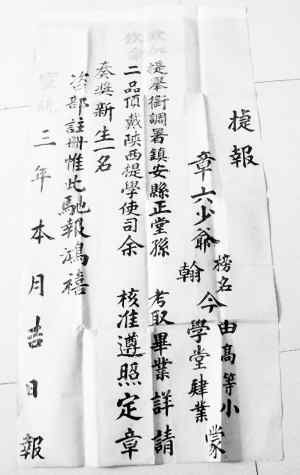 捷報
章六少爺 榜名翰今 由高等小學堂肄業蒙
提舉銜調署鎮安縣正堂孫 考取畢業詳請
二品頂戴陝西提學使司余 核准遵照定章
奏獎新生一名
咨部註冊惟此馳報鴻禧
宣統三年本月吉日報